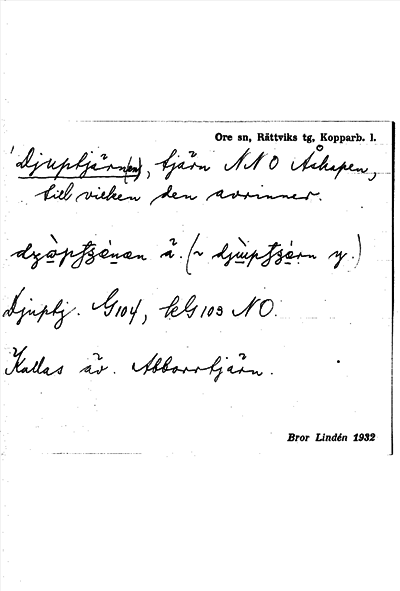 Ore sn, Rättviks tg, Kopparb. l.
Djuptjärn(en), tjärn NNO Åskapen,
till vilken den avrinner.
ä. (~ y.)
Djuptj. G104, kG103 NO.
Kallas äv. Abborrtjärn.
Bror Lindén 1932